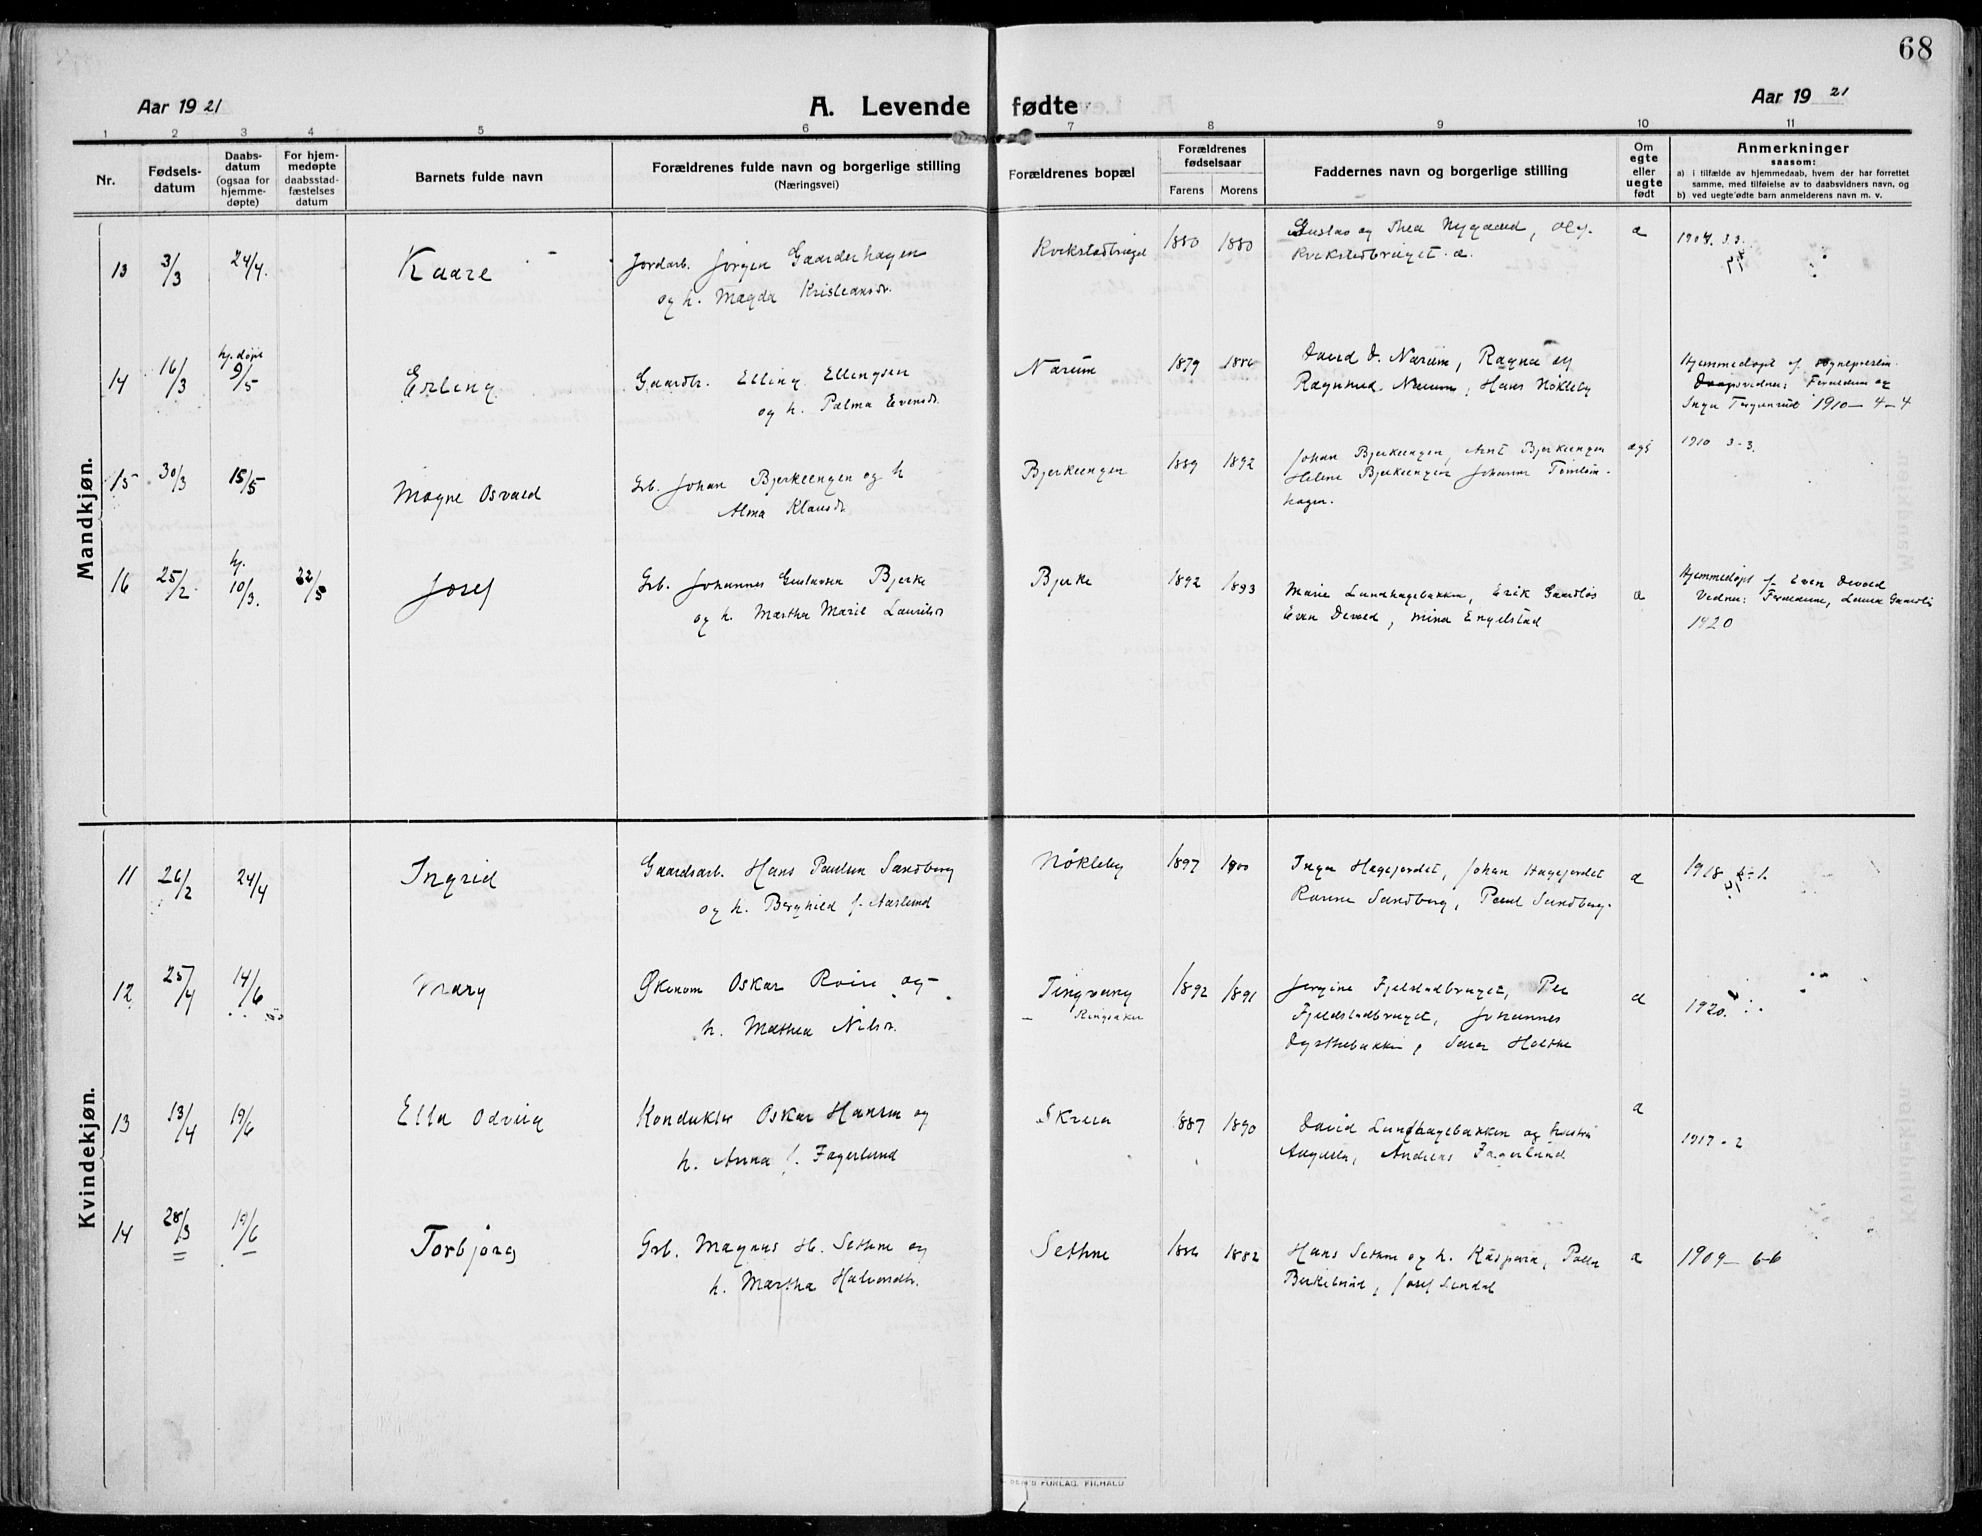 68
Aar 1921
A. Levende fødte
Aar 1921
1 2 3 4 5 6 7 8 9 10 11
Nr.
Fødsels-
datum
Daabs-
datum
(ogsaa for
hjemme-
døpte)
For hjem-
medøpte
daabsstad-
fæstelses
datum
Barnets fulde navn
Forældrenes fulde navn og borgerlige stilling
(Næringsvei)
Forældrenes bopæl
Forældrenes
fødselsaar
Farens Morens
Faddernes navn og borgerlige stilling
Om
egte
eller
uegte
født
Anmerkninger
saasom:
a) i tilfælde av hjemmedaab, hvem der har forrettet
samme, med tilføielse av to daabsvidners navn, og
b) ved uegte fødte barn anmelderens navn m. v.
Mandkjøn.
13 3/3 24/4. Kaare Jordarb. Jørgen Gaarderhagen Kvikstadbruget 1880 1880 Gustav og Thea Nygaard, Olaf a 1904. 3.3.
og h. Magda Kristiansdr. Kvikstadbruget. a.
hj. døpt
14 16/3 9/5 Erling Gaardbr. Elling Ellingsen Narum 1879 1886 David D. Narum, Ragna og Hjemmedøpt af Sognepresten.
og h. Palma Evensdr. Ragnhild Narum, Hans Nøkleby Daapsvidner: Foreldrene og
Inga 1910 – 4 – 4
15 30/3 15/5 Magne Osvald Grb. Johan Bjerkeengen og h Bjerkeengen 1889 1892 Johan Bjerkeengen, Arnt Bjerkeengen 1910 3-3.
Alma Klausdr. Helene Bjerkeengen Johanne Tømten-
hagen.
hj.
16 25/2 10/3. 22/5 Josef Grb. Johannes Gustavsen Bjerke Bjerke 1892 1893 Marie Lundhagebakken, Erik Gaardløs a Hjemmedøpt af Even Devold
og h. Martha Marie Lauritsdr Even Devold, Mina Engelstad Vidner: Foreldrene, Laura Gaardløs
1920
Kvindekjøn.
11 26/2 24/4 Ingrid Gaardsarb. Hans Paulsen Sandberg Nøkleby 1897 1900 Inga Hagejordet, Johan Hagejordet a 1918
og h. Berghild f. Aaslund Karen Sandberg, Paul Sandberg.
12 25/4 14/6 Mary Økonom Oskar Roise og Tingvang 1892 1891 Jørgine Fjelstadbruget, Per a 1920.
h. Mathea Nilsdr. Ringsaker Fjeldstadbruget, Johannes
Dysthebakken, Sara Holthe
13 13/4 19/6 Ella Odvig Konduktør Oskar Hansen og Skreia 1887 1890 David Lundhagebakken og hustru a 1917 - 2
h. Anna f. Fagerlund Augusta, Andreas Fagerlund
14 28/3 19/6 Torbjørg Grb. Magnus H. Sethne og Sethne 1886 1882 Hans Sethne og h. Kaspara, Palle a 1909 – 6-6
h. Martha Halvorsdr. Birkelund, Josef Sendal